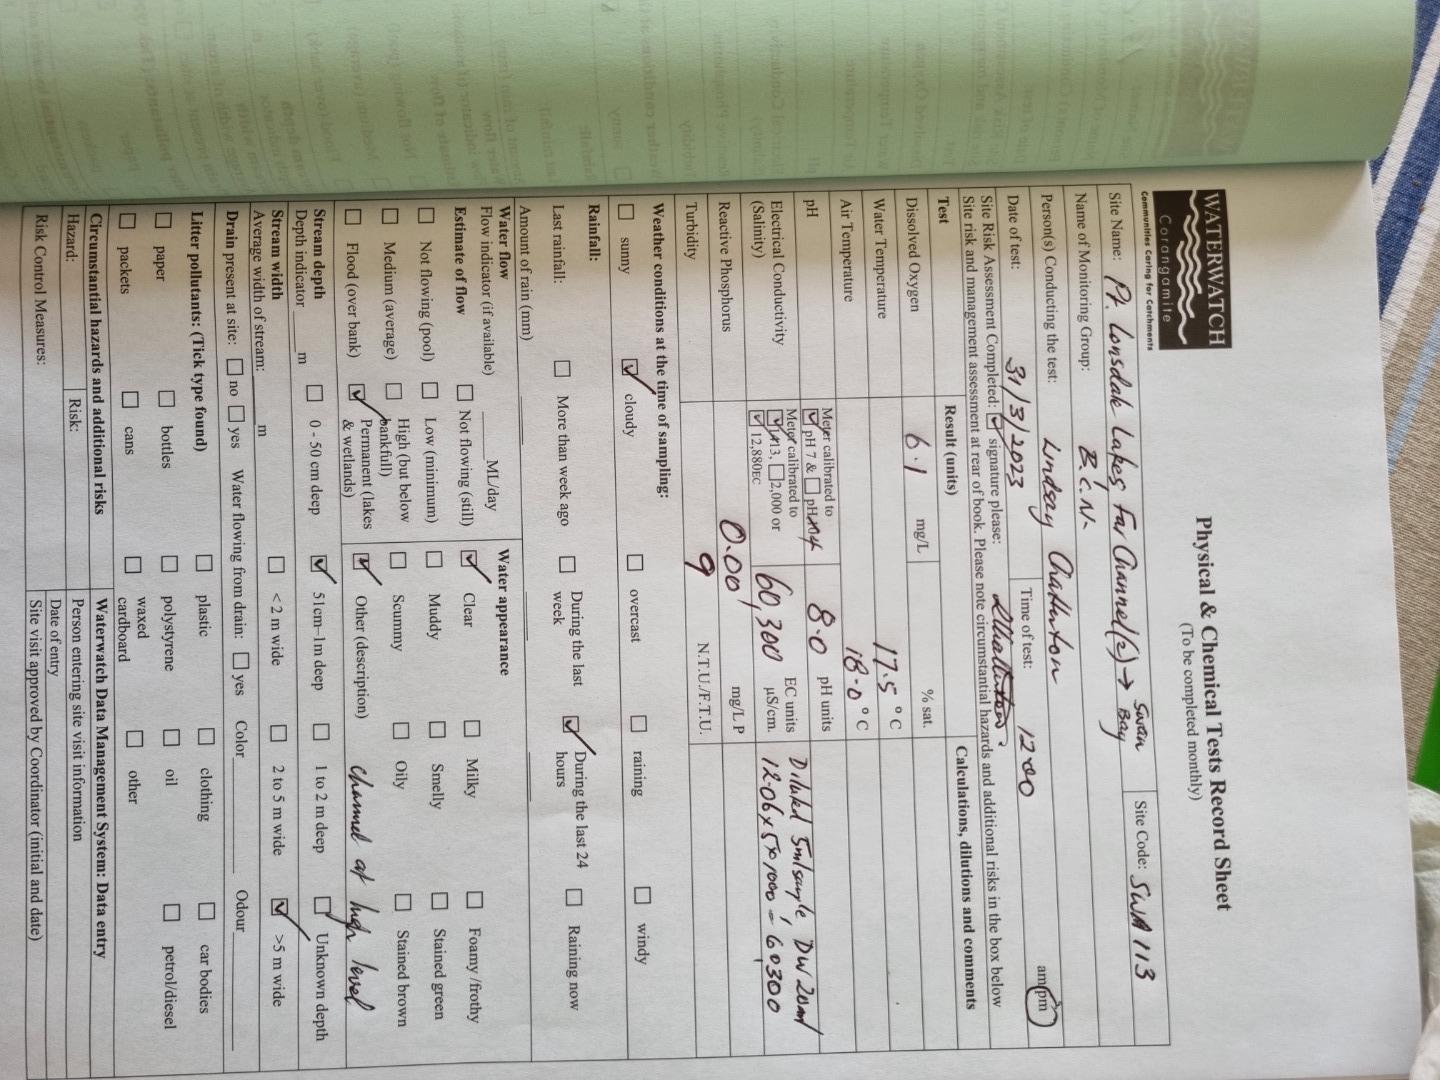 WATERWATCH
Corangamite
Communities Caring for Catchments
Physical & Chemical Tests Record Sheet
(To be completed monthly)
Site Name: Pt. Lonsdale Lakes, Far Channel(2) → Swan Bay Site Code: SWA 113
Name of Monitoring Group: B.C.N.
Person(s) Conducting the test: Lindsay Chatterton
Date of test: 31/3/2023 Time of test: 12.00 am/pm
Site Risk Assessment Completed: signature please:
Site risk and management assessment at rear of book. Please note circumstantial hazards and additional risks in the box below
Test Result (units) Calculations, dilutions and comments
Dissolved Oxygen 6.1 mg/L % sat.
Water Temperature 17.5 °C
Air Temperature 18.0 °C
pH Meter calibrated to pH 7 & pH 4 8.0 pH units
Electrical Conductivity (Salinity) Meter calibrated to 1413, 2,000 or 12,880EC 60,300 EC units µS/cm.
Diluted 5ml sample, DW 20ml
12.06 x 5 x 1000 = 60,300
Reactive Phosphorus 0.00 mg/L P
Turbidity 9 N.T.U./F.T.U.
Weather conditions at the time of sampling:
sunny cloudy overcast raining windy
Rainfall:
Last rainfall: More than week ago During the last week During the last 24 hours Raining now
Amount of rain (mm)
Water flow
Flow indicator (if available) ML/day
Estimate of flow Not flowing (still)
Not flowing (pool) Low (minimum)
Medium (average) High (but below bankfull)
Flood (over bank) Permanent (lakes & wetlands)
Water appearance
Clear Milky Foamy /frothy
Muddy Smelly Stained green
Scummy Oily Stained brown
Other (description) channel at high level
Stream depth
Depth indicator m 0 - 50 cm deep 51cm–1m deep 1 to 2 m deep Unknown depth
Stream width
Average width of stream: m < 2 m wide 2 to 5 m wide >5 m wide
Drain present at site: no yes Water flowing from drain: yes Color Odour
Litter pollutants: (Tick type found) plastic clothing car bodies
paper bottles polystyrene oil petrol/diesel
packets cans waxed cardboard other
Circumstantial hazards and additional risks
Hazard: Risk:
Risk Control Measures:
Waterwatch Data Management System: Data entry
Person entering site visit information
Date of entry
Site visit approved by Coordinator (initial and date)